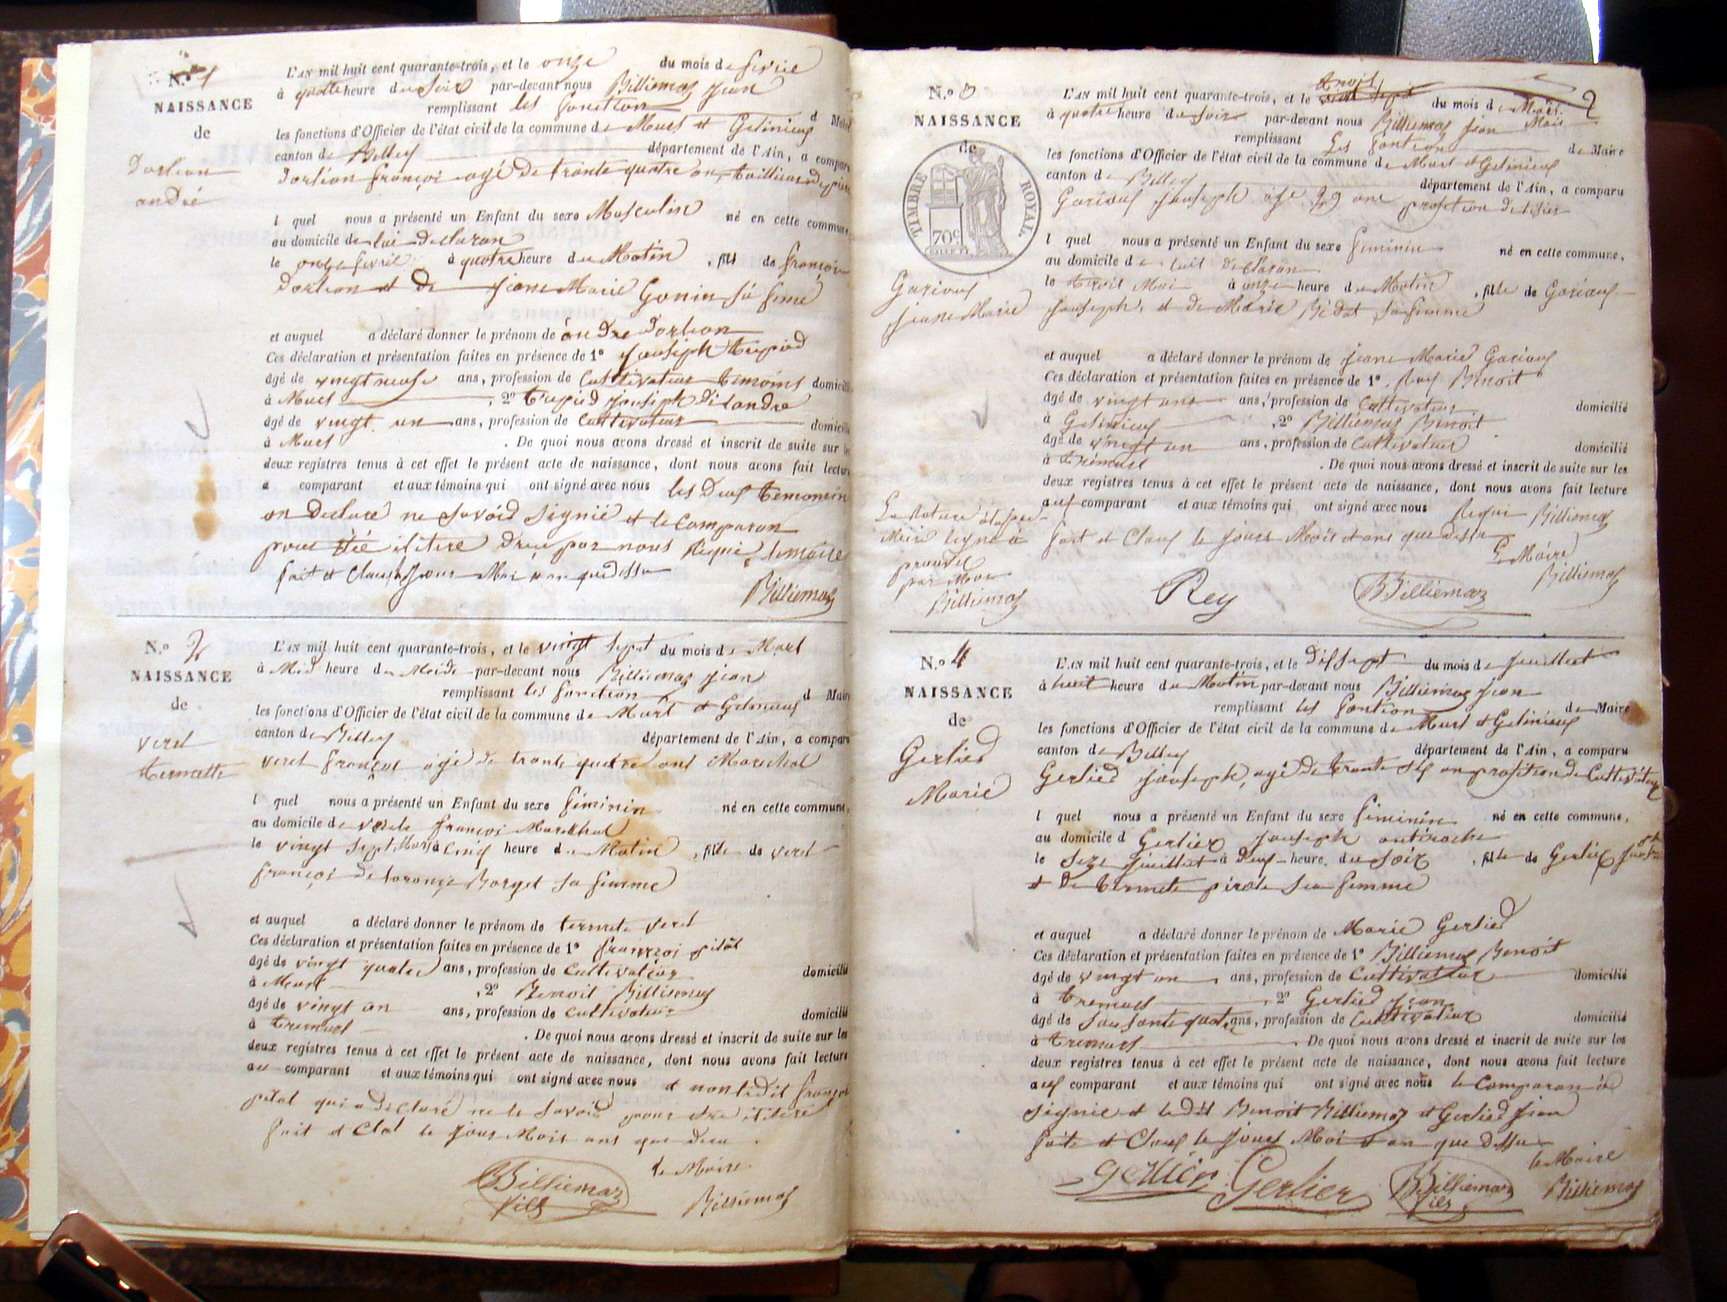 N.º 1
NAISSANCE
de
Dortion
andré
L'AN mil huit cent quarante-trois, et le onze du mois de fevrie
à quatre heure du Soir par-devant nous Billiemaz jean
remplissant les fonction d Maire
les fonctions d'Officier de l'état civil de la commune de Murs et Gelinieux
canton de Belley département de l'Ain, a comparu
Dortion françoi agé de trante quatre an
l quel nous a présenté un Enfant du sexe Masculin né en cette commune,
au domicile de lui declaran
le onze fevrie à quatre heure du Matin , fils de françoi
Dortion et de jeane Marie Gonin sa feme
et auquel a déclaré donner le prénom de andre Dortion
Ces déclaration et présentation faites en présence de 1º jauseph trepied
âgé de vingt neuf ans, profession de Cultivateur temoins domicilié
à Murs , 2º trepied jauseph di landre
âgé de vingt un ans, profession de Cultivateur domicilié
à Murs . De quoi nous avons dressé et inscrit de suite sur les
deux registres tenus à cet effet le présent acte de naissance, dont nous avons fait lecture
a comparant et aux témoins qui ont signé avec nous les deux temonin
on declaré ne savoid signié et le Comparan
pour ilitere par nous Requi le maire
fait et Claux jour Moi an que dessu
Billiemaz
N.º 2
NAISSANCE
de
veret
ternette
L'AN mil huit cent quarante-trois, et le vingt sept du mois de Mars
à Mid heure du Meidi par-devant nous Billiemaz jean
remplissant les fonction d Maire
les fonctions d'Officier de l'état civil de la commune de Murs et Gelinieux
canton de Belley département de l'Ain, a comparu
veret françoi agé de trante quatre ans Marechal
l quel nous a présenté un Enfant du sexe féminin né en cette commune,
au domicile de françoi Marechal
le vingt sept Mars à Cinq heure du Matin , fille de veret
françoi de Borget sa femme
et auquel a déclaré donner le prénom de ternete veret
Ces déclaration et présentation faites en présence de 1º françoi pitat
âgé de vingt quatre ans, profession de Cultivateur domicilié
à Murs , 2º Benoit Billiemaz
âgé de vingt an ans, profession de Cultivateur domicilié
à tremurs . De quoi nous avons dressé et inscrit de suite sur les
deux registres tenus à cet effet le présent acte de naissance, dont nous avons fait lecture
au comparant et aux témoins qui ont signé avec nous et non ledit françoi
pitat qui a declaré ne le Savoid pour etre ilitere
fait et Clos le jour Mois ans que dessu
Le Maire
Billiemaz
fils
Billiemaz
2
N.º 3
NAISSANCE
de
TIMBRE ROYAL.
70c
Gariouf
jeane Marie
L'AN mil huit cent quarante-trois, et le troit du mois de Mai
à quatre heure du Soir par-devant nous Billiemaz jean Mair
remplissant Les fontion de Maire
les fonctions d'Officier de l'état civil de la commune de Murs et Gelinieux
canton de Belley département de l'Ain, a comparu
Gariouf jauseph age 39 ans profition
l quel nous a présenté un Enfant du sexe feminin né en cette commune,
au domicile de luit Declaran
le troit Mai à onze heure du Matin , fille de Gariouf
jauseph, et de Marie Bidat sa femme
et auquel a déclaré donner le prénom de jeane Marie Gariouf
Ces déclaration et présentation faites en présence de 1º. Rey Benoit
âgé de vingt ans ans, profession de Cultivateur domicilié
à Gelinieux , 2º Billiemaz Benoit
âgé de vingt un ans, profession de Cultivateur domicilié
à tremurs . De quoi nous avons dressé et inscrit de suite sur les
deux registres tenus à cet effet le présent acte de naissance, dont nous avons fait lecture
auf comparant et aux témoins qui ont signé avec nous Requi Billiemaz
fait et Clauf le jour Mois et ans que dessu
Le Maire
Billiemaz
La Rature
ligne à
prouvé
par Moi
Billiemaz
Rey
Billiemaz
N.º 4
NAISSANCE
de
Gerlied
Marie
L'AN mil huit cent quarante-trois, et le Dissept du mois de juillet
à huit heure du Matin par-devant nous Billiemaz jean
remplissant les fontion de Maire
les fonctions d'Officier de l'état civil de la commune de Murs et Gelinieux
canton de Belley département de l'Ain, a comparu
Gerlied jauseph, agé de trante six an profition de Cultivateur
l quel nous a présenté un Enfant du sexe feminin né en cette commune,
au domicile d Gerlier jauseph
le seze juillet à deuf heure du Soir , fille de Gerlier
et de ternete pirole sea femme
et auquel a déclaré donner le prénom de Marie Gerlied
Ces déclaration et présentation faites en présence de 1º Billiemaz Benoit
âgé de vingt an ans, profession de Cultivateur domicilié
à tremurs , 2º Gerlied jean
âgé de Soisante quatre ans, profession de Cultivateur domicilié
à tremurs . De quoi nous avons dressé et inscrit de suite sur les
deux registres tenus à cet effet le présent acte de naissance, dont nous avons fait lecture
auf comparant et aux témoins qui ont signé avec nous le Comparan a
signié et ledit Benoit Billiemaz et Gerlied jean
faite et Clauf le jour Moi et an que dessu
Le Maire
Gerlier Gerlier Billiemaz
fils
Billiemaz